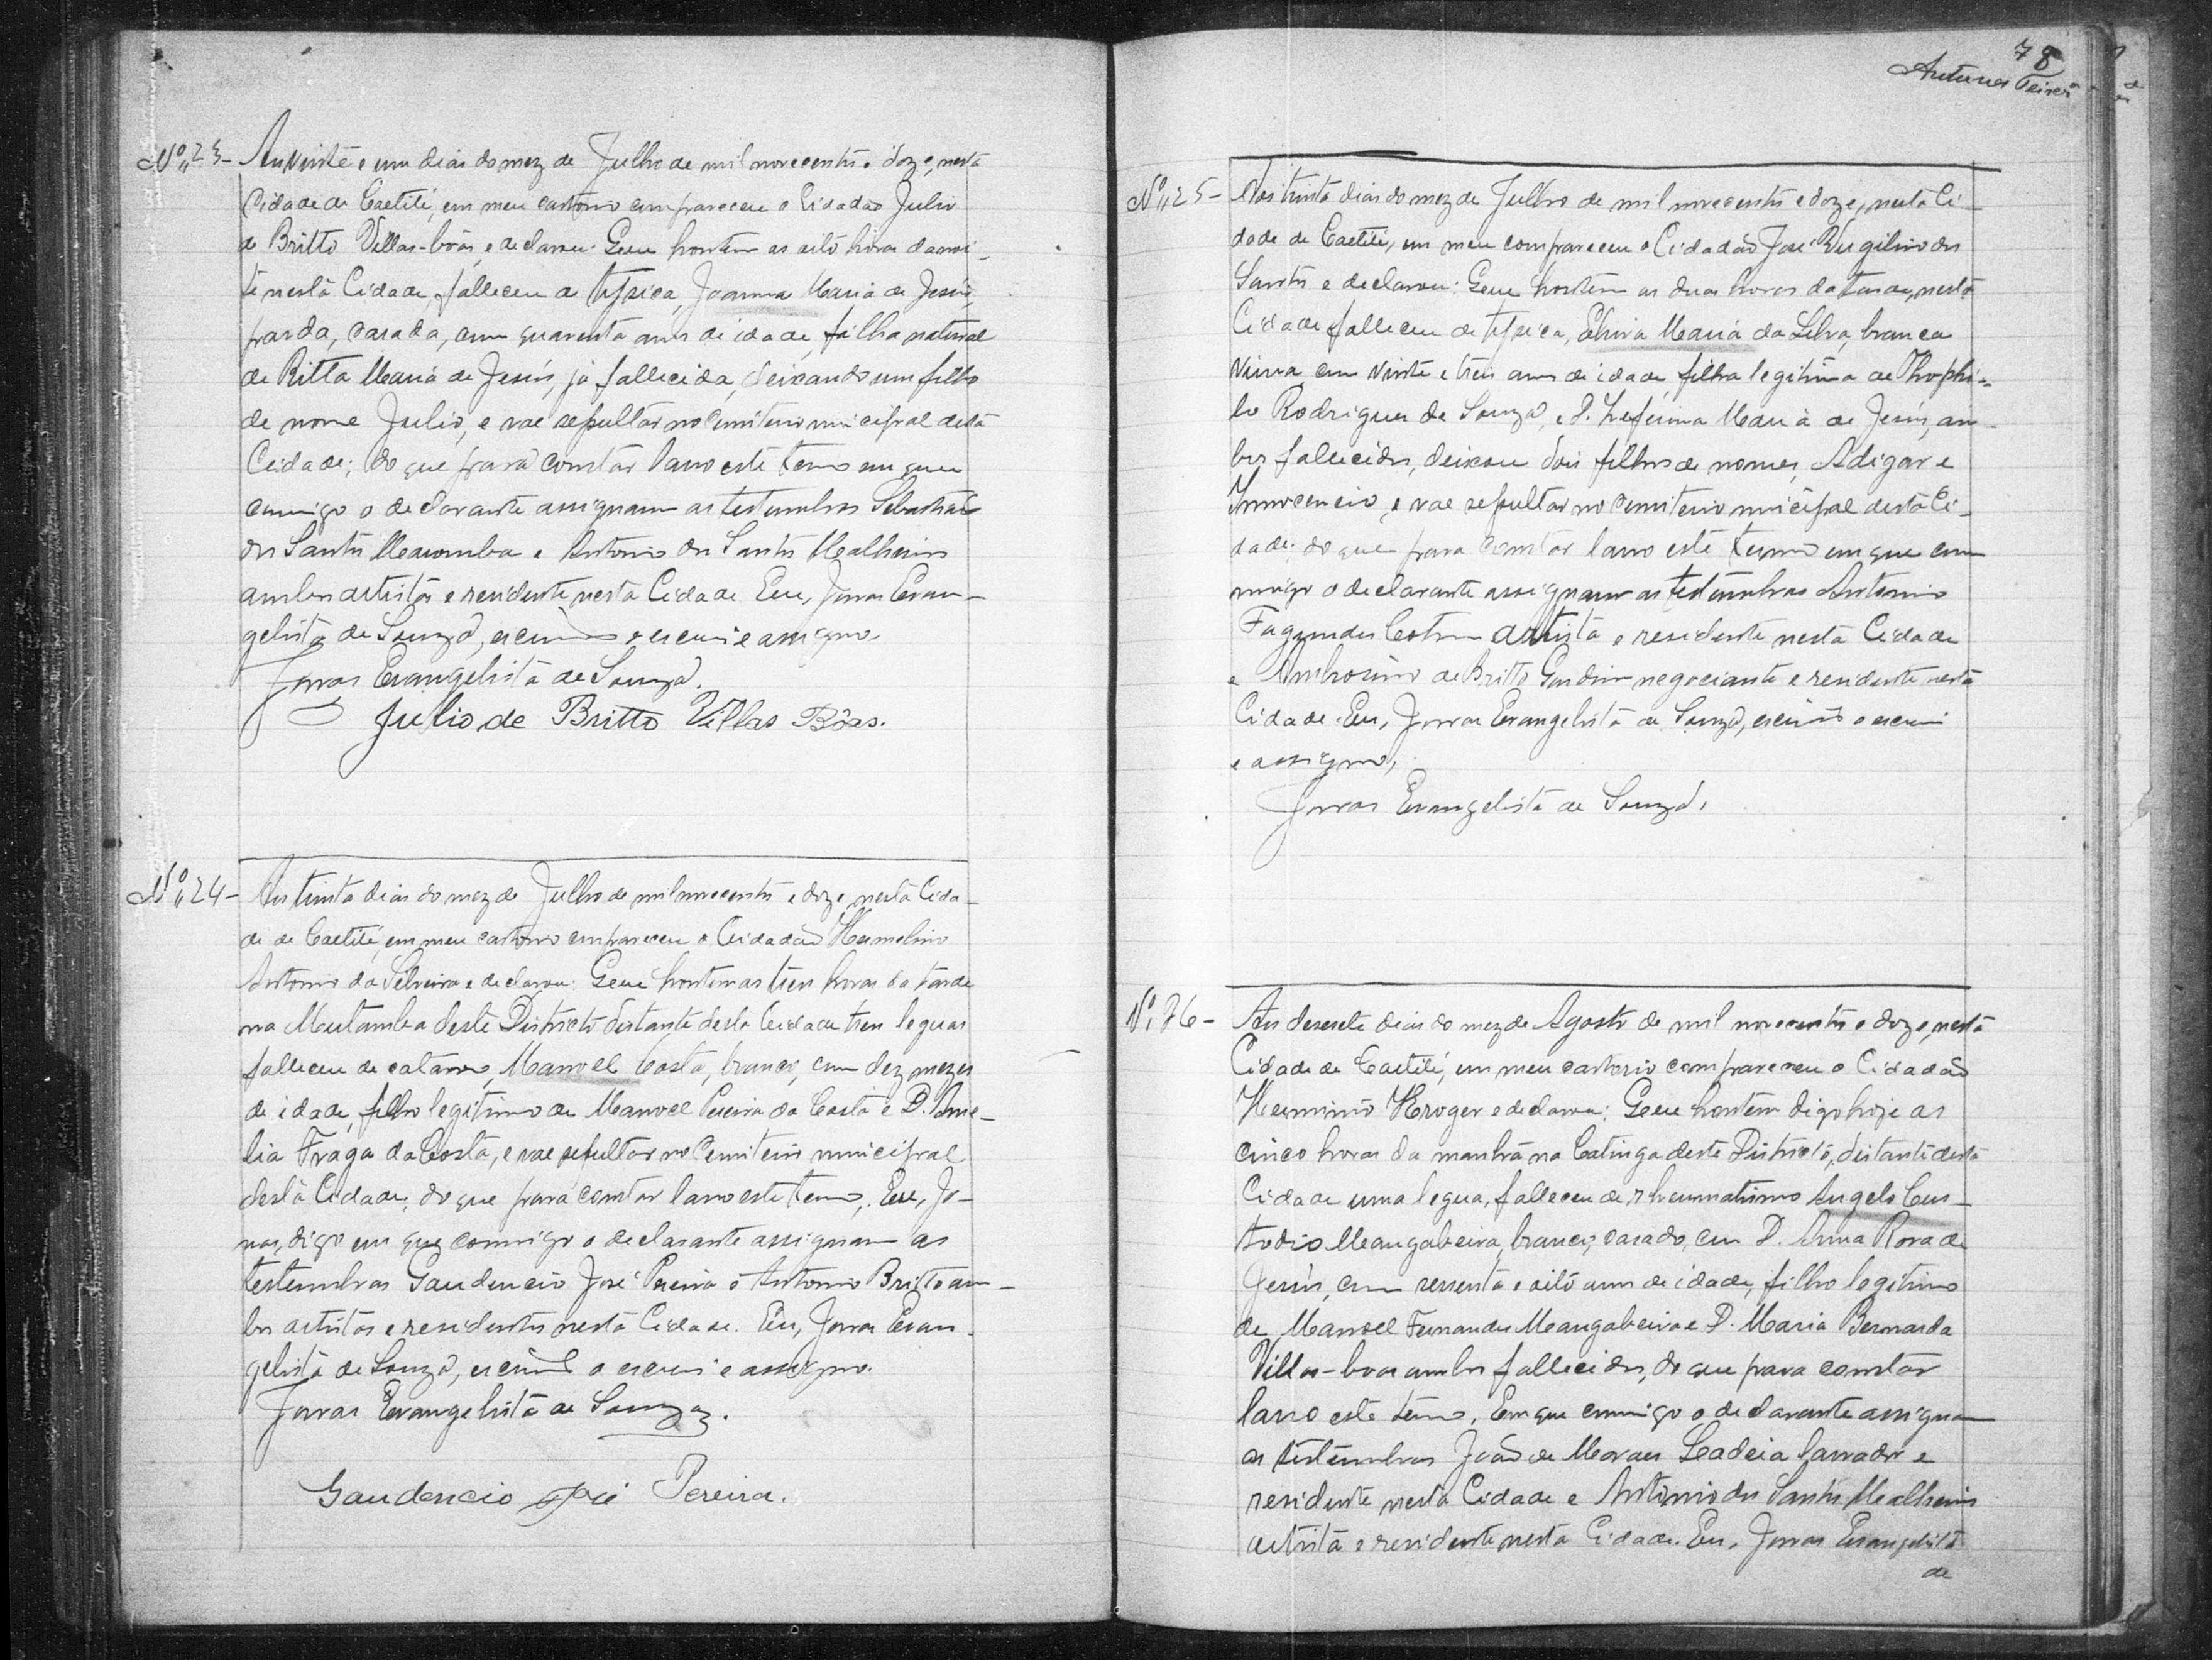 Nº 23- Aos vinte e um dias do mez de Julho de mil novecentos e doze, nesta
Cidade de Caetité, em meu cartorio compareceu o Cidadão Julio
de Britto Villas-bôas, e declarou: Que hontem as oito horas da noi-
te nesta Cidade, falleceu de tysica, Joanna Maria de Jesús,
parda, casada, com quarenta annos de idade, filha natural
de Ritta Maria de Jesús, já fallecida, deixando um filho
de nome Julio, e vae sepultar no Cemiterio municipal desta
Cidade; do que para constar lavro este termo em que
commigo o declarante assignam as testemunhas Sebastião
dos Santos Macomba e Antonio dos Santos Malheiros
ambos artistas e residente nesta Cidade. Eu, Jonas Evan-
gelista de Souza, escrivão o escrevi e assigno.
Jonas Evangelista de Souza.
Julio de Britto Villas Bôas.
Nº 24- Aos trinta dias do mez de Julho de mil novecentos e doze, nesta Cida-
de de Caetité, em meu cartorio compareceu o Cidadão Hermelino
Antonio da Silveira e declarou: Que hontem as tres horas da tarde
na Mutamba deste Districto distante desta Cidade tres leguas
falleceu de catarro, Manoel Costa, branco, com dez mezes
de idade, filho legitimo de Manoel Pereira da Costa e D. Ame-
lia Fraga da Costa, e vae sepultar no Cemiterio municipal
desta Cidade; do que para constar lavro este termo,. Eu, Jo-
nas, digo em que commigo o declarante assignam as
testemunhas Gaudencio José Pereira e Antonio Britto am-
bos artistas e residentes nesta Cidade. Eu, Jonas Evan-
gelista de Souza, escrivão o escrevi e assigno.
Jonas Evangelista de Souza.
Gaudencio José Pereira.
78
Antunes Teixeira
Nº 25- Aos trinta dias do mez de Julho de mil novecentos e doze, nesta Ci-
dade de Caetité, em meu compareceu o Cidadão José Virgilino dos
Santos e declarou: Que hontem as duas horas da tarde, nesta
Cidade falleceu de tysica, Elvira Maria da Silva, branca
viuva com vinte e tres annos de idade, filha legitima de Thophi-
lo Rodrigues de Souza, e D. Zeferina Maria de Jesús, am-
bos fallecidos, deixou dois filhos de nomes, Adigar e
Innocencio, e vae sepultar no Cemiterio municipal desta Ci-
dade; do que para constar lavro este termo em que com
migo o declarante assignam as testemunhas Antonio
Fagundes Cotrim artista e residente nesta Cidade
e Ambrosino de Britto Gondim negociante e residente nesta
Cidade. Eu, Jonas Evangelista de Souza, escrivão o escrevi
e assigno,
Jonas Evangelista de Souza,
Nº 26- Aos desesete dias do mez de Agosto de mil novecentos e doze, nesta
Cidade de Caetité, em meu cartorio compareceu o Cidadão
Herminio Kroger e declarou: Que hontem digo hoje as
cinco horas da manhã na Catinga deste Districto, distante desta
Cidade uma legua, falleceu de rheumatismo Angelo Cus-
todio Mangabeira, branco, casado, com D. Anna Rosa de
Jesús, com sessenta e oito annos de idade, filho legitimo
de Manoel Fernandes Mangabeira e D. Maria Bernarda
Villas-boas ambos fallecidos, do que para constar
lavro este termo, Em que commigo o declarante assignam
as testemunhas João de Moraes Ladeia lavrador e
residente nesta Cidade e Antonio dos Santos Malheiros
artista e residente nesta Cidade. Eu, Jonas Evangelista
de